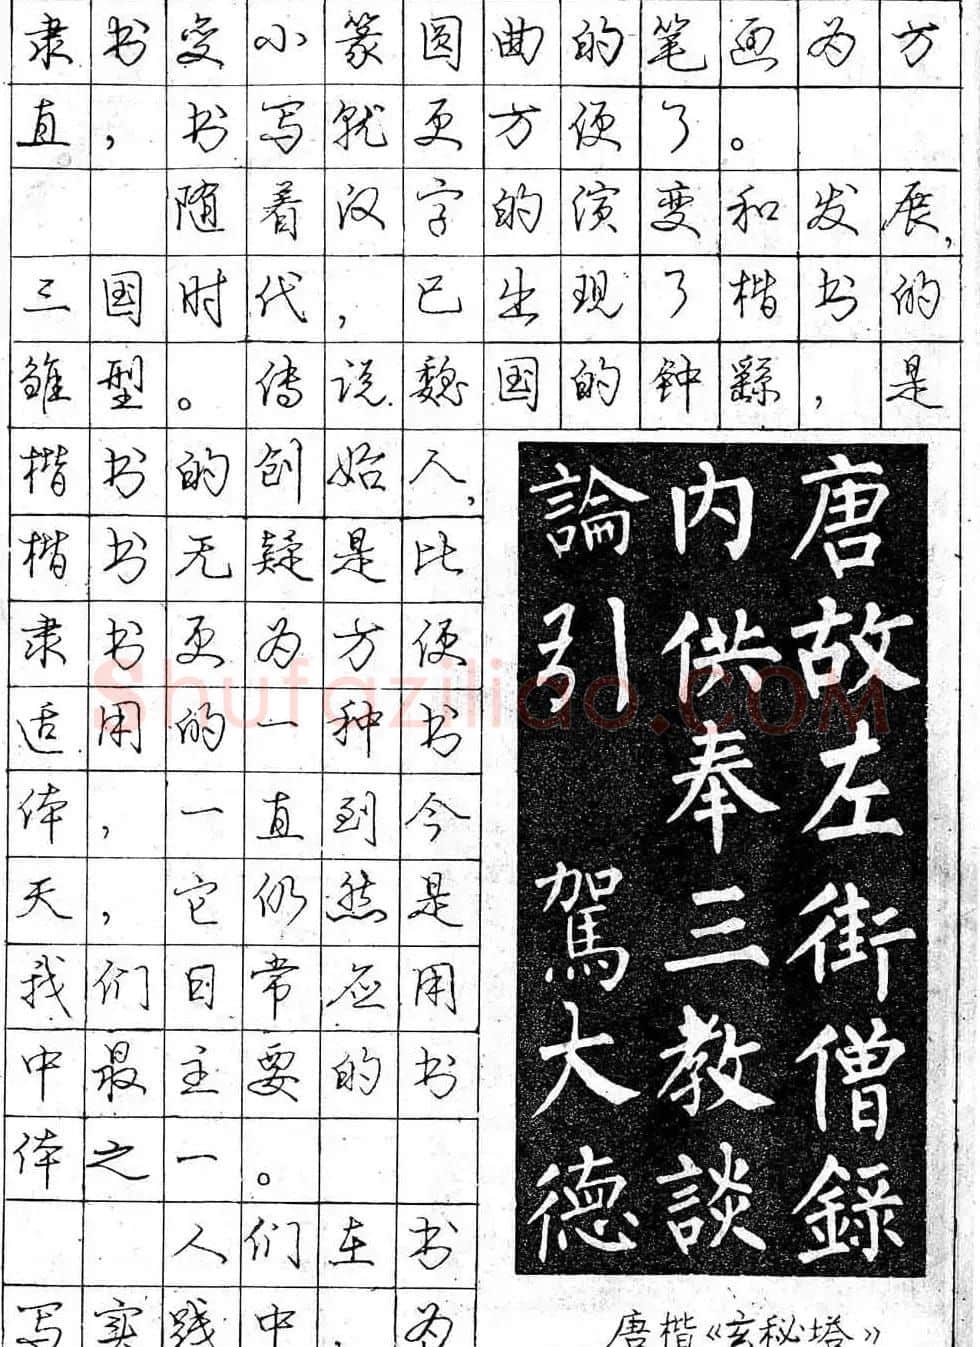 隶书变小篆圆曲的笔画为方
直，书写就更方便了。
随着汉字的演变和发展，
三国时代，已出现了楷书的
雏型。传说魏国的钟繇，是
楷书的创始人，
楷书无疑是比
隶书更为方便
适用的一种书
体，一直到今
天，它仍然是
我们日常应用
中最主要的书
体之一。
人们在书
写实践中，为
唐故左街僧録
内供奉三教談
論引駕大德
唐楷《玄秘塔》
Shufaziliao.COM